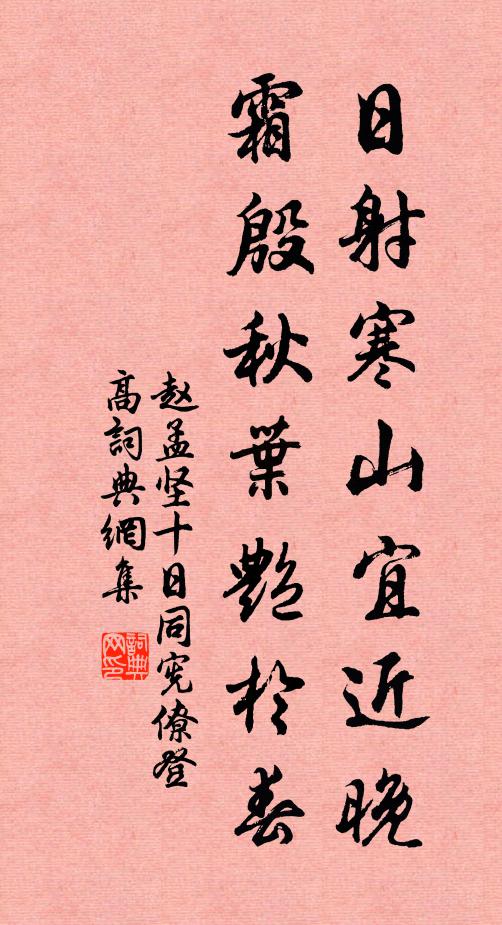 日射寒山宜近晚
霜殷秋葉艷於春
赵孟坚十日同宪僚登
高詞典網集
詞典
网印